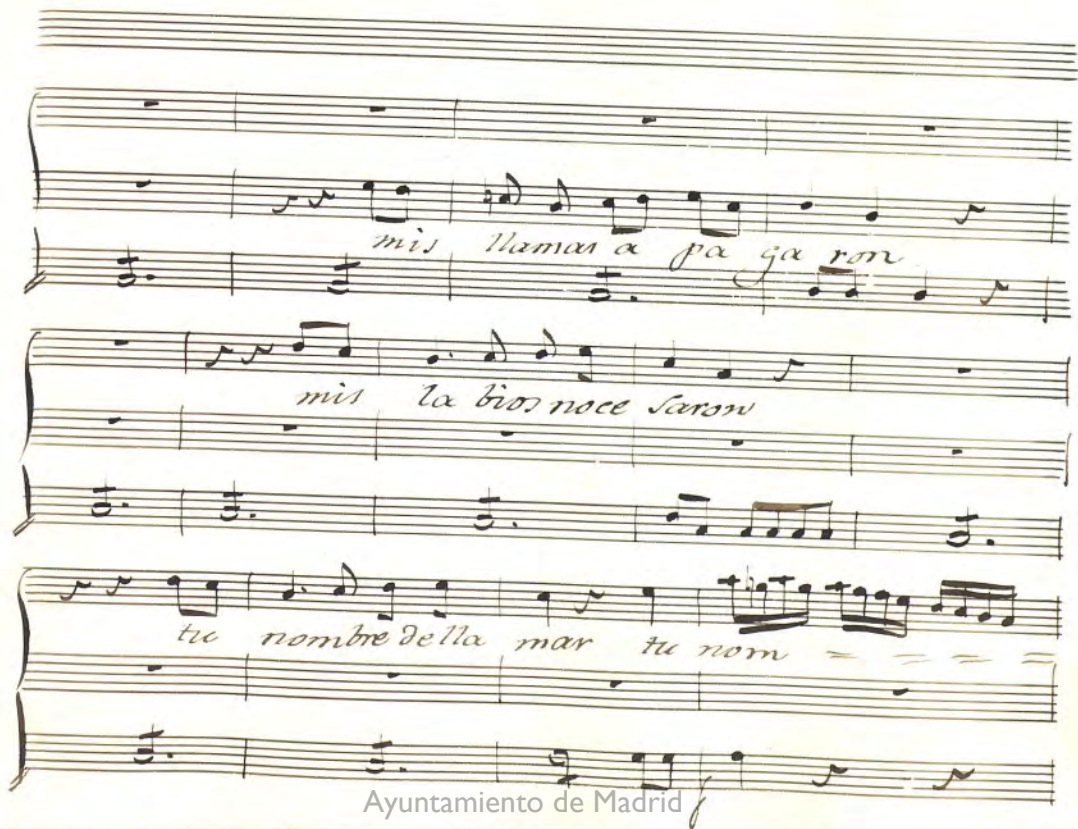 mis llamas a pa ga ron
mis la bios no ce saron
tu nombre de lla mar tu nom = = = =
Ayuntamiento de Madrid